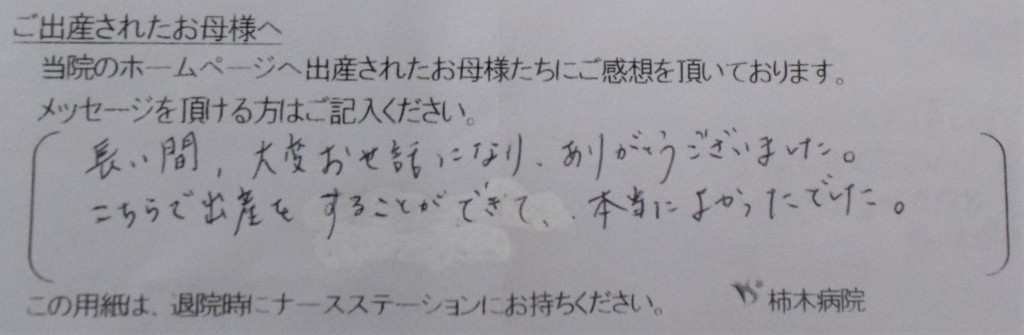 ご出産されたお母様へ
当院のホームページへ出産されたお母様たちにご感想を頂いております。
メッセージを頂ける方はご記入ください。
長い間，大変お世話になり、ありがとうございました。
こちらで出産をすることができて、、本当によかったでした。
この用紙は、退院時にナースステーションにお持ちください。 柿木病院